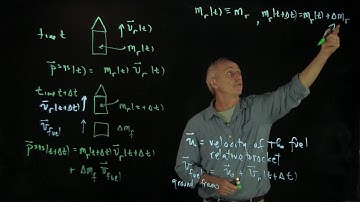 time t
v⃗_r(t)
m_r(t)
p⃗^sys(t) = m_r(t) v⃗_r(t)
time t+Δt
v⃗_r(t+Δt)
m_r(t+Δt)
v⃗_fuel
Δm_f
p⃗^sys(t+Δt) = m_r(t+Δt) v⃗_r(t+Δt)
+ Δm_f v⃗_fuel
m_r(t) ≡ m_r , m_r(t+Δt) = m_r(t) + Δm_r
u⃗ = velocity of the fuel
relative to rocket
v⃗_fuel = u⃗ + v⃗_r(t+Δt)
ground frame